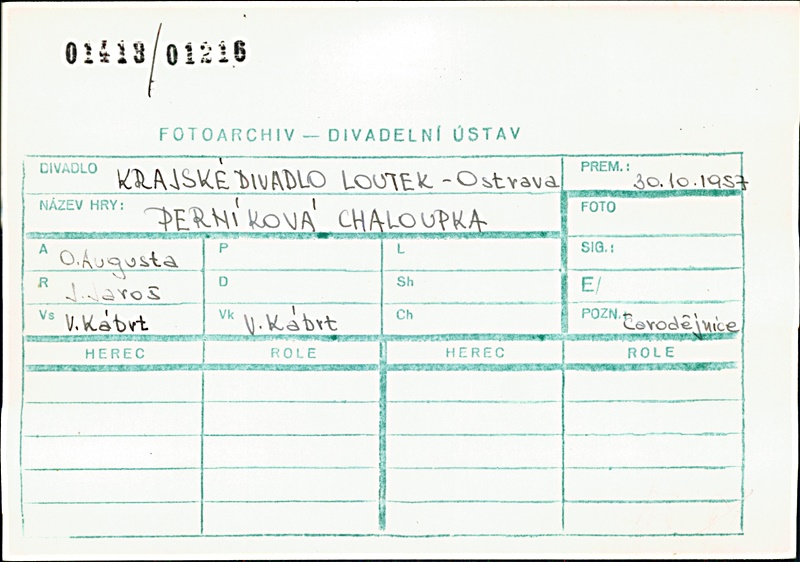 01413/01216
FOTOARCHIV — DIVADELNÍ ÚSTAV
DIVADLO KRAJSKÉ DIVADLO LOUTEK - Ostrava PREM.: 30.10.1987
NÁZEV HRY: PERNÍKOVÁ CHALOUPKA FOTO
A O. Augusta P L SIG.:
R J. Jaroš D Sh E/
Vs V. Kábrt Vk V. Kábrt Ch POZN. Čarodějnice
HEREC ROLE HEREC ROLE